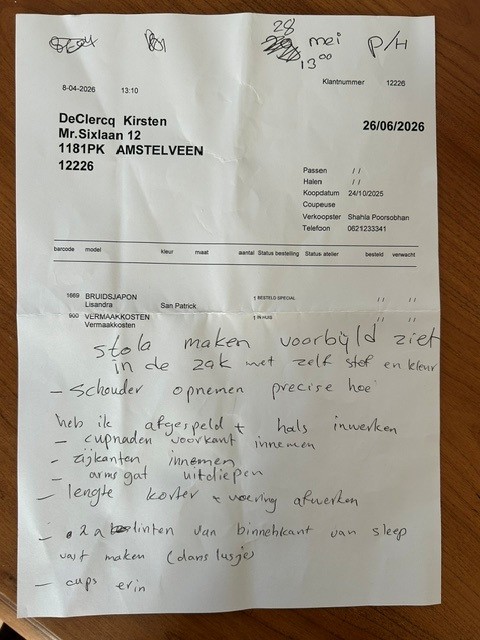 28
mei P/H
13 00
Klantnummer 12226
8-04-2026 13:10
DeClercq Kirsten
Mr.Sixlaan 12
1181PK AMSTELVEEN
12226
26/06/2026
Passen / /
Halen / /
Koopdatum 24/10/2025
Coupeuse
Verkoopster Shahla Poorsobhan
Telefoon 0621233341
barcode model kleur maat aantal Status bestelling Status atelier besteld verwacht
1669 BRUIDSJAPON 1 BESTELD SPECIAL / / / /
Lisandra San Patrick
900 VERMAAKKOSTEN 1 IN HUIS / / / /
Vermaakkosten
stola maken voorbijld ziet
in de zak met zelf stof en kleur
- Schouder opnemen precise hoe
heb ik afgespeld + hals inwerken
- cupnaden voorkant innemen
- zijkanten innemen
- armsgat uitdiepen
- lengte korter + voering afwerken
- 2 linten van binnenkant van sleep
vast maken (dans lusje)
- cups erin